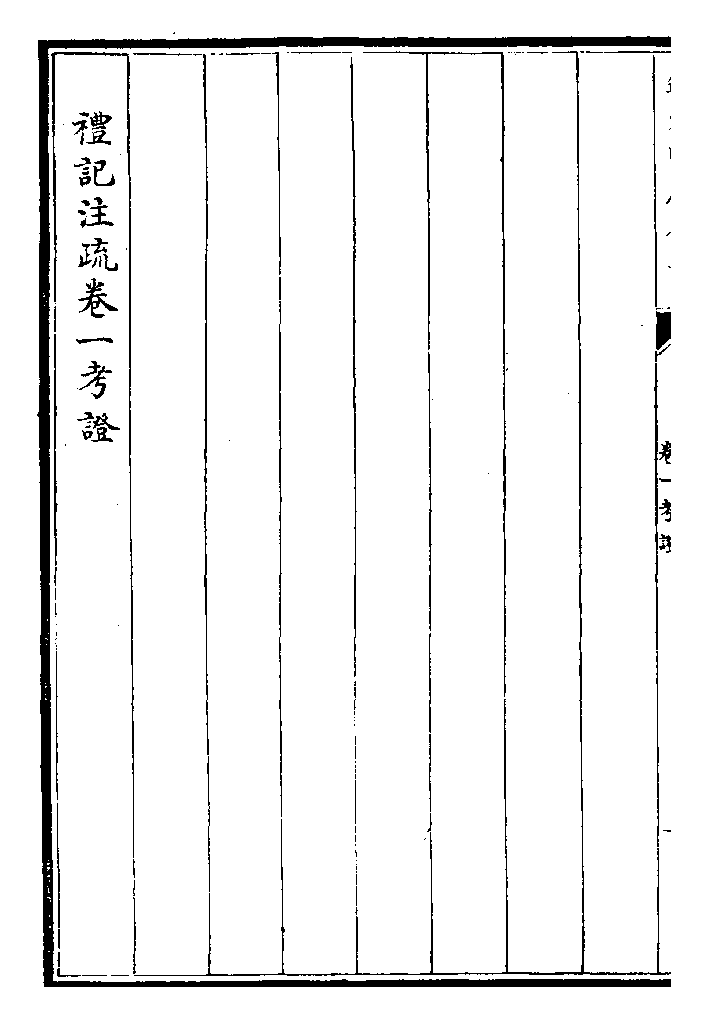 卷一考證
禮記注疏卷一考證